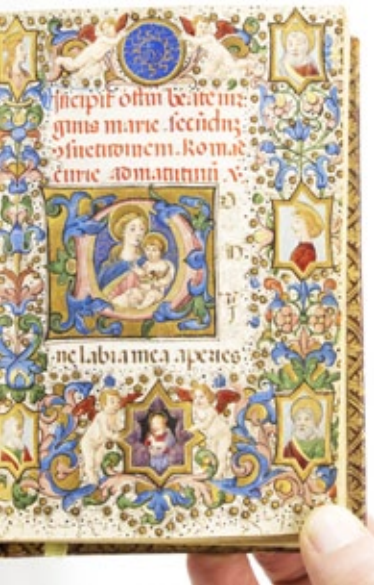 Incipit offm beate vir
ginis marie. secūduz
ɔsuetudinem. Romae
curie. ad matutinū. V.
D
O
M
I
ne labia mea aperies